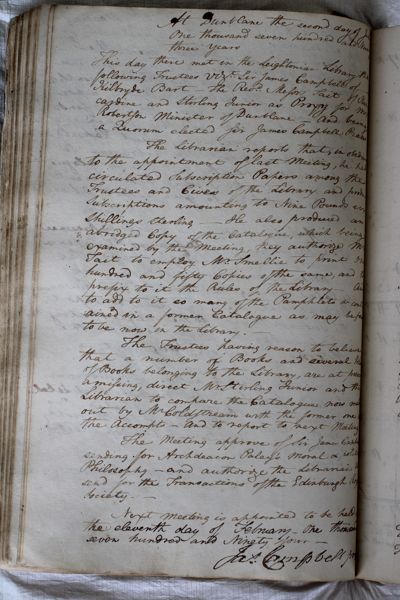 At Dunblane the second day of
One thousand seven hundred and
three years
This day there met in the Leightonian Library the
following Trustees Vizt. Sir James Campbell of
Kilbryde Bart - the Revd. Messrs. Tait of
cardine and Stirling Junior as Proxy for
Robertson Minister of Dunblane - and being
a Quorum elected Sir James Campbell
The Librarian reports that in
to the appointment of last Meeting, he has
circulated Subscription Papers among the
Trustees and Cives of the Library and
Subscriptions amounting to Nine Pounds
Shillings Sterling - He also produced an
abridged Copy of the Catalogue, which being
examined by the Meeting, they authorize Mr
Tait to employ Mr. Smellie to print
hundred and fifty Copies of the same, and to
prefix to it the Rules of the Library
to add to it so many of the Pamphlets
ained in a former Catalogue as may be
to be now in the Library. -
The Trustees having reason to believe
that a number of Books and several
of Books belonging to the Library, are at
amissing, direct Mr. Stirling Junior and the
Librarian to compare the Catalogue now
out by Mr. Coldstream with the former one
the Accompts - And to report to next Meeting
The Meeting approve of Sir Jas. Campbell
sending for Archdeacon Paley's Moral &
Philosophy - and authorize the Librarian to
send for the Transactions of the Edinburgh
Society. -
Next Meeting is appointed to be held
the eleventh day of February One thousand
seven hundred and Ninety four -
Jas. Campbell